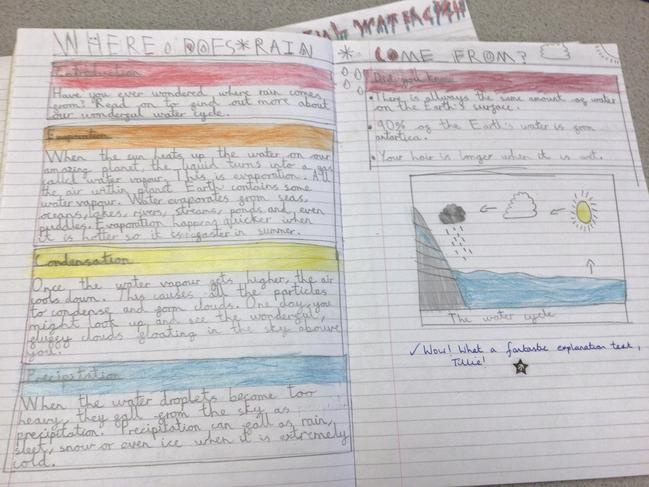 WHERE DOES * RAIN * COME FROM?
Introduction
Have you ever wondered where rain comes
from? Read on to find out more about
our wonderful water cycle.
Evaporation
When the sun heats up the water on our
amazing planet, the liquid turns into a gas
called water vapour. This is evaporation. All
the air within planet Earth contains some
water vapour. Water evaporates from seas,
oceans, lakes, rivers, streams, ponds and even
puddles. Evaporation happens quicker when
it is hotter so it is faster in summer.
Condensation
Once the water vapour gets higher, the air
cools down. This causes all the particles
to condense and form clouds. One day, you
might look up and see the wonderful,
fluffy clouds floating in the sky above
you.
Precipitation
When the water droplets become too
heavy, they fall from the sky as
precipitation. Precipitation can fall as rain,
sleet, snow or even ice when it is extremely
cold.
Did you know
• There is allways the same amount of water
on the Earth's surface.
• 90% of the Earth's water is from
antartica.
• Your hair is longer when it is wet.
The water cycle
✓ Wow! What a fantastic explanation text,
Tillie!